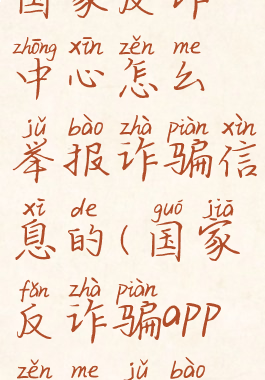 国家反诈
zhōng xīn zěn me
中心怎么
jǔ bào zhà piàn xìn
举报诈骗信
xī de guó jiā
息的(国家
fǎn zhà piàn
反诈骗app
zěn me jǔ bào